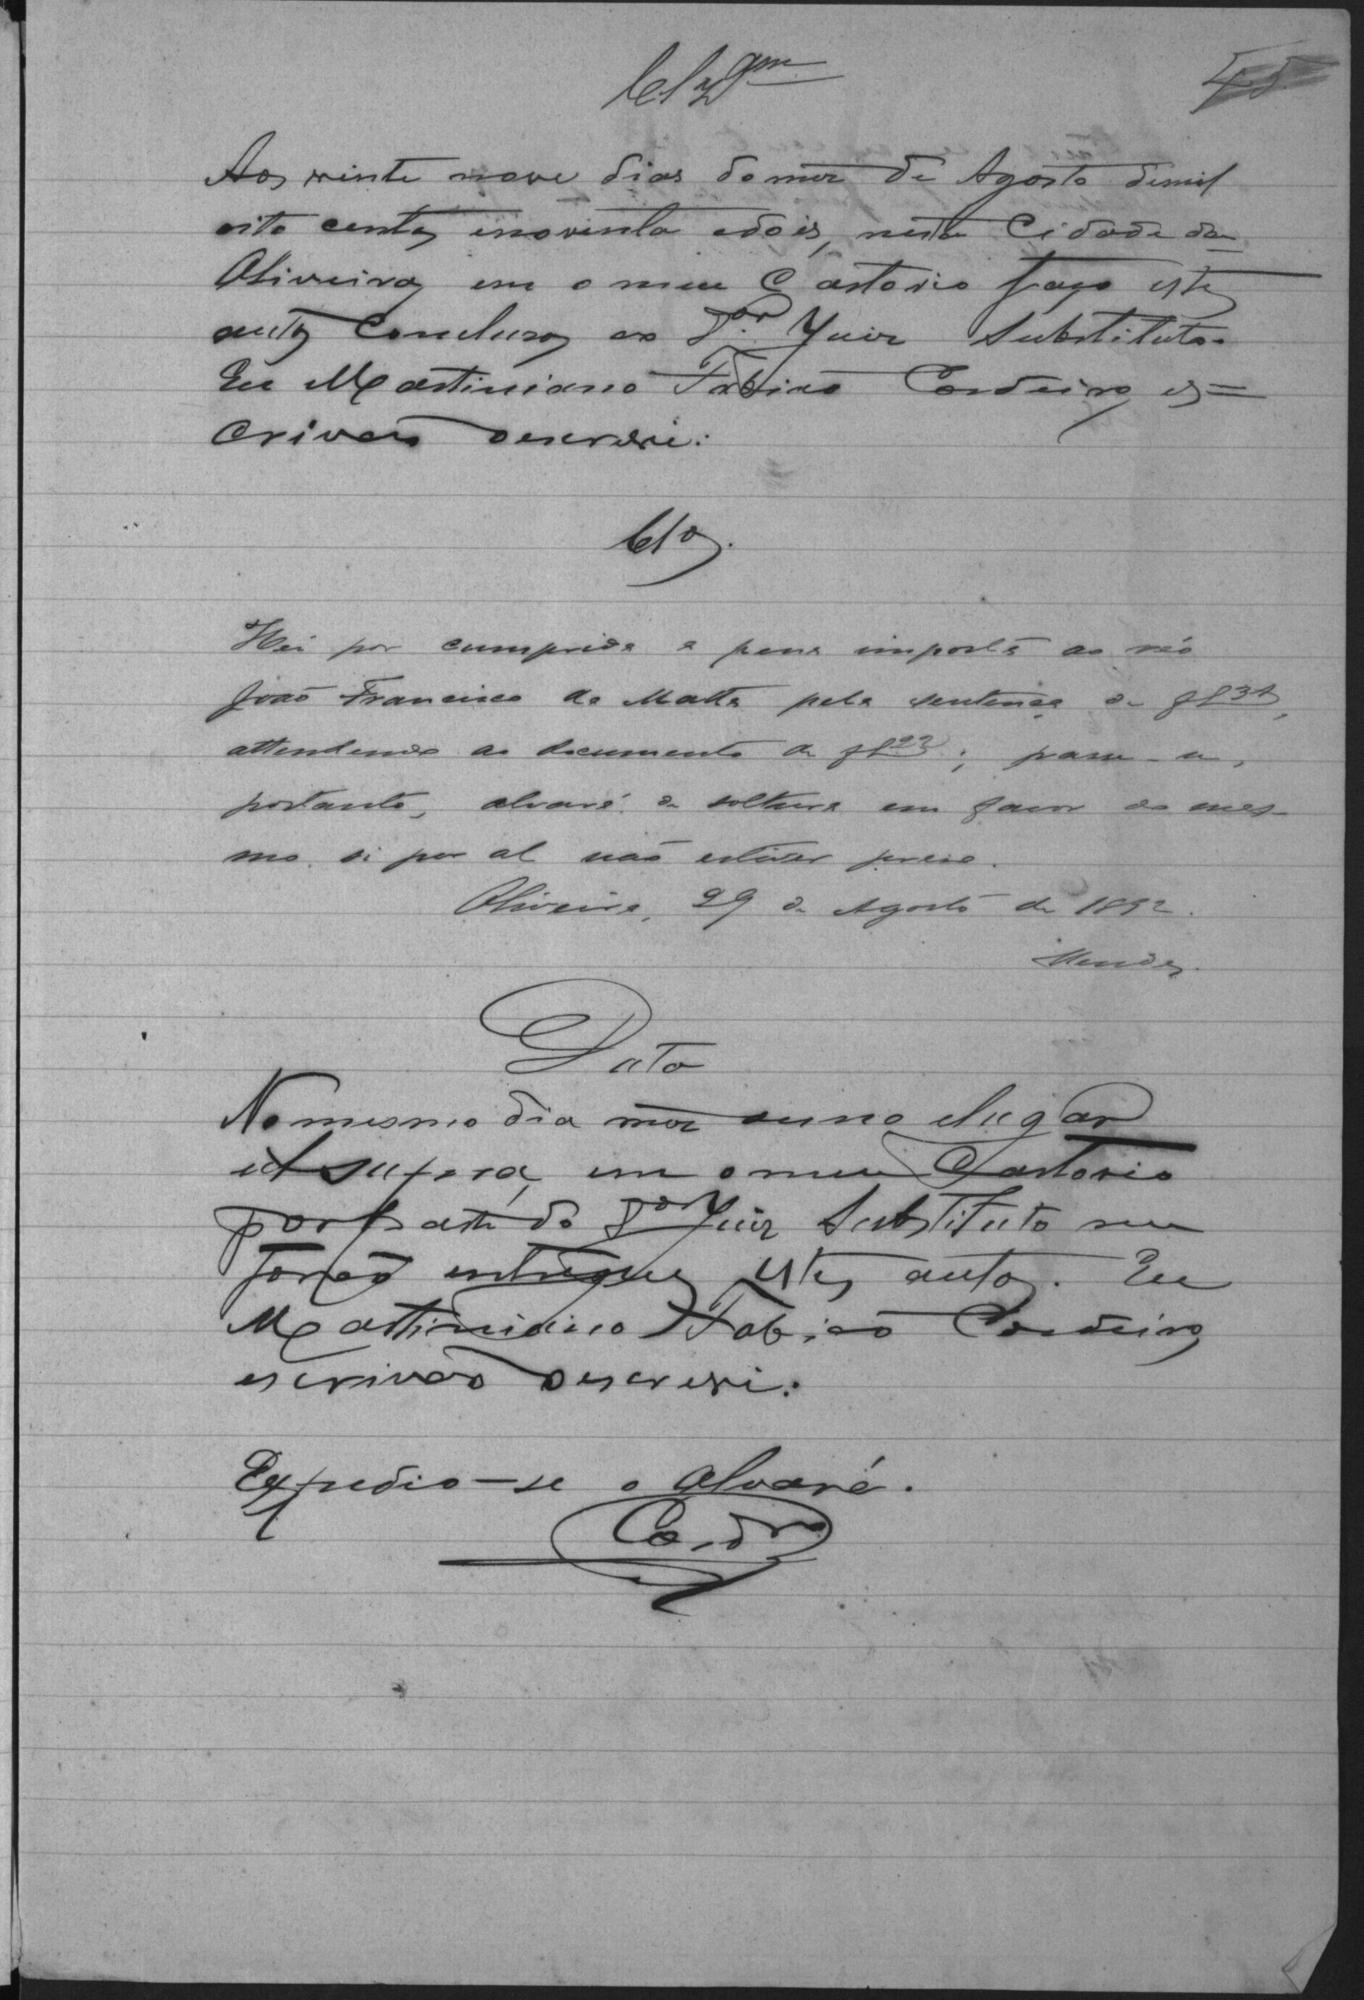 45
Clzam
Aos vinte nove dias do mez de Agosto demil
oito centos enoventa edois, nesta Cidade da
Oliveira, em o meu Cartorio faço estes
autos Conclusos ao Dor. Juiz Substituto.
Eu Martiniano Fabião Cordeiro es=
crivão oescrevi.
Clos.
Hei por cumprida a pena imposta ao réo
João Francisco da Matta pela sentença de fl
attendendo ao documento de fl 22; passe-se,
portanto, alvará de soltura em favor do mes-
mo, si por al não estiver preso.
Oliveira, 29 de Agosto de 1892.
Mendes.
Data
No mesmo dia mez anno elugar
ut supra, em o meu Cartorio
por parte do Dor Juiz Substituto me
forão entregues estes autos. Eu
Martiniano Fabião Cordeiro
escrivão oescrevi.
Expedio-se o Alvará.
Cordro